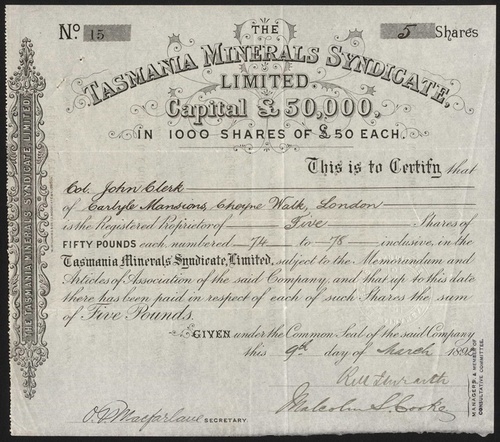 No. 15
5 Shares
THE
TASMANIA MINERALS SYNDICATE,
LIMITED.
Capital £50,000,
IN 1000 SHARES OF £50 EACH.
This is to Certify that
Col. John Clerk
of Carlyle Mansions, Cheyne Walk, London
is the Registered Proprietor of Five Shares of
FIFTY POUNDS each, numbered 74 to 78 inclusive, in the
Tasmania Minerals Syndicate, Limited, subject to the Memorandum and
Articles of Association of the said Company, and that up to this date
there has been paid in respect of each of such Shares the sum
of Five Pounds.
GIVEN under the Common Seal of the said Company
this 9th day of March 189
O. P. Macfarlane SECRETARY.
Malcolm S. Cooke
MANAGERS & MEMBER OF
CONSULTATIVE COMMITTEE.
THE TASMANIA MINERALS SYNDICATE LIMITED